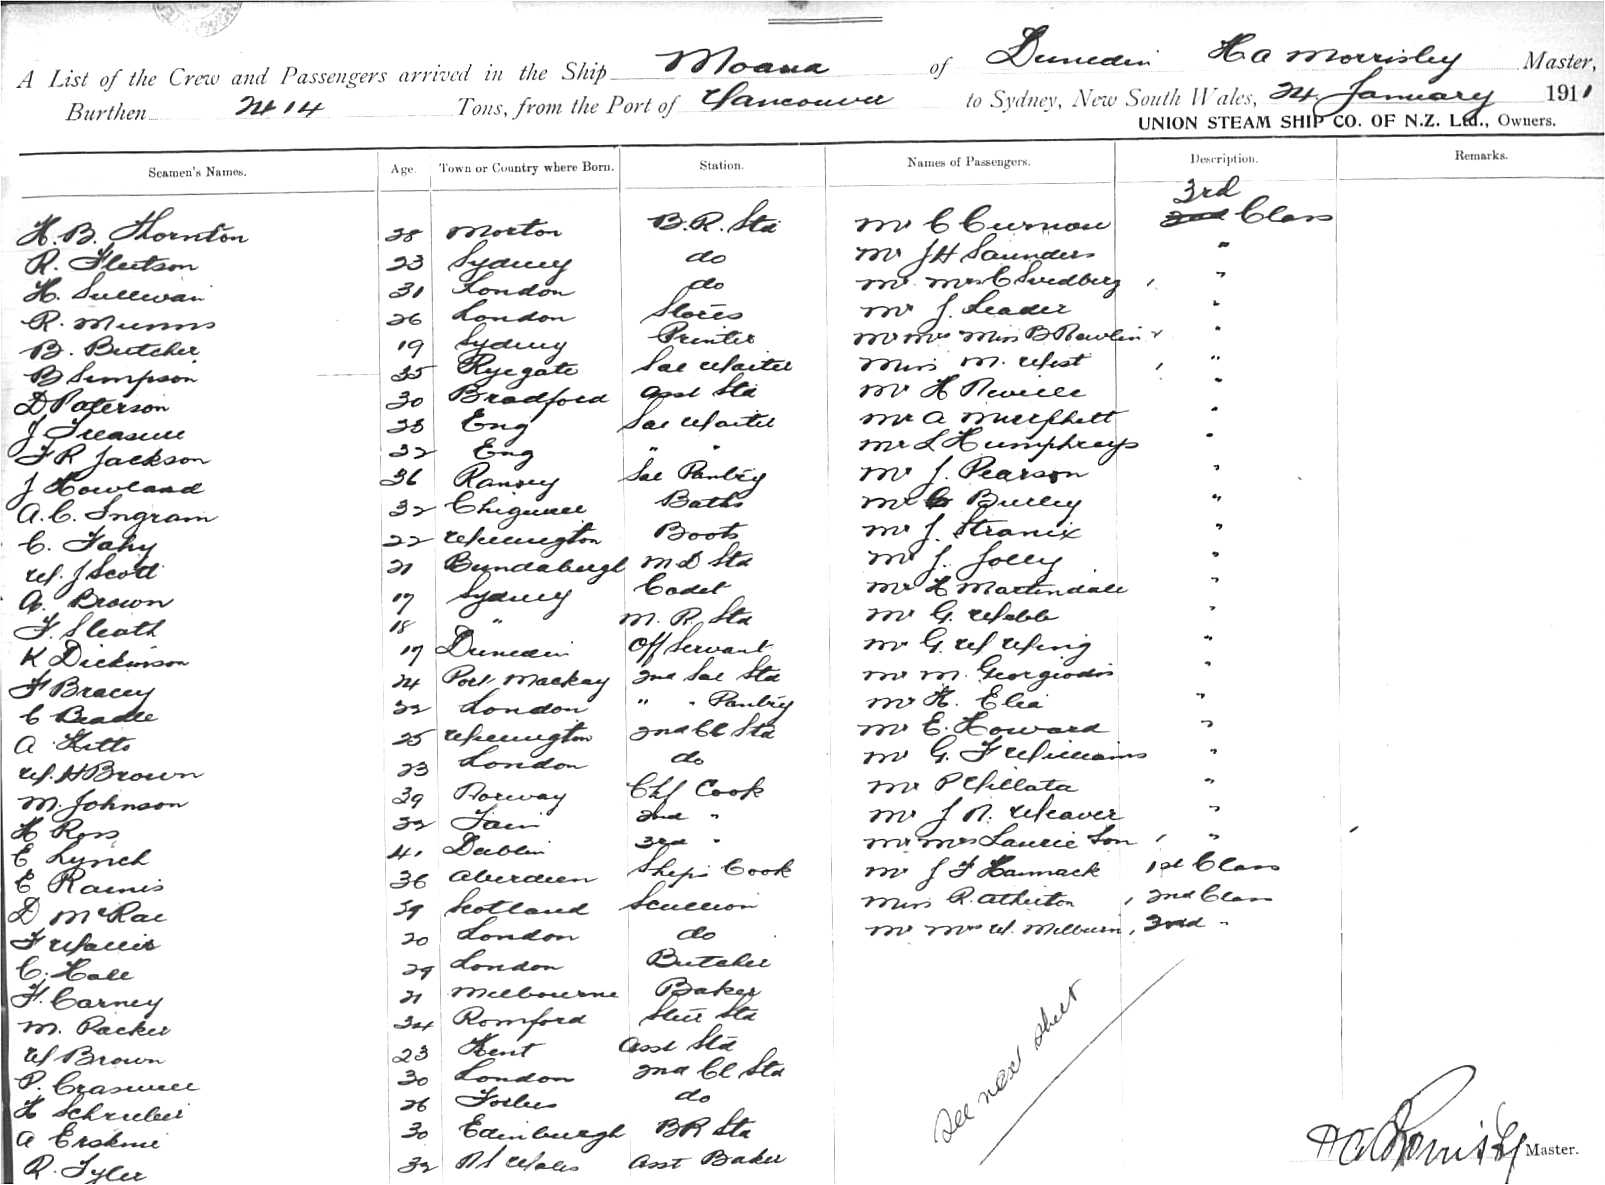 A List of the Crew and Passengers arrived in the Ship Moana of Dunedin H A Morrisby Master,
Burthen 2414 Tons, from the Port of Vancouver to Sydney, New South Wales, 24 January 1911
UNION STEAM SHIP CO. OF N.Z. Ltd., Owners.
Seamen's Names. Age. Town or Country where Born. Station. Names of Passengers. Description. Remarks.
3rd
H. B. Thornton 28 Morton B. R. Std Mr C Curnow Class
R. 23 Sydney do Mr J H Saunders "
H. Sullivan 31 London do Mr Mrs C Svedberg , "
R. Munns 26 London Stores Mr J. Leader "
B. Butcher 19 Sydney Printer Mr Mrs Miss B Rawlin "
B Simpson 35 Ryegate Sal Waiter Miss M. West , "
D Paterson 30 Bradford Asst Std Mr H Neville "
J Treasure 28 Eng Sal Waiter Mr A "
F R Jackson 32 Eng " " Mr L Humphreys "
J Howland 36 Sal Pantry Mr J. Pearson "
A. C. Ingram 32 Chigwell Baths Mr Burley "
C. Fahy 22 Wellington Boots Mr J. Stranix "
W. J Scott 21 Bundabergh M D Std Mr J. Jolly "
A. Brown 17 Sydney Cadet Mr H Martindale "
F. Sleath 18 " M. R. Std Mr G. Webb "
K Dickinson 17 Dunedin Off Servant Mr G. W Wing "
F Bracey 24 Port Mackay 2nd Sal Std Mr M. "
C Beadle 32 London " " Pantry Mr H. Elia "
A Kitto 25 Wellington 2nd Cl Std Mr E. Howard "
W. H Brown 23 London do Mr G. F Williams "
M. Johnson 39 Norway Chf Cook Mr P Willata "
H Ross 32 Tain 2nd " Mr J N. Weaver "
E Lynch 41 Dublin 3rd " Mr Mrs Laurie Son , "
E Rainis 36 Aberdeen Ships Cook Mr J F Hammack 1st Class
D McRae 39 Scotland Scullion Miss R. Atherton , 2nd Class
F Wallis 20 London do Mr Mrs W. Milburn , 3rd "
C. Hall 29 London Butcher
F. Carney 21 Melbourne Baker
M. Packer 34 Romford Std
W Brown 23 Kent Asst Std
P. Craswell 30 London 2nd Cl Std
H Schreiber 26 Forbes do
A Erskine 30 Edinburgh B R Std
R. Tyler 32 N S Wales Asst Baker
See next sheet
H A Morrisby Master.